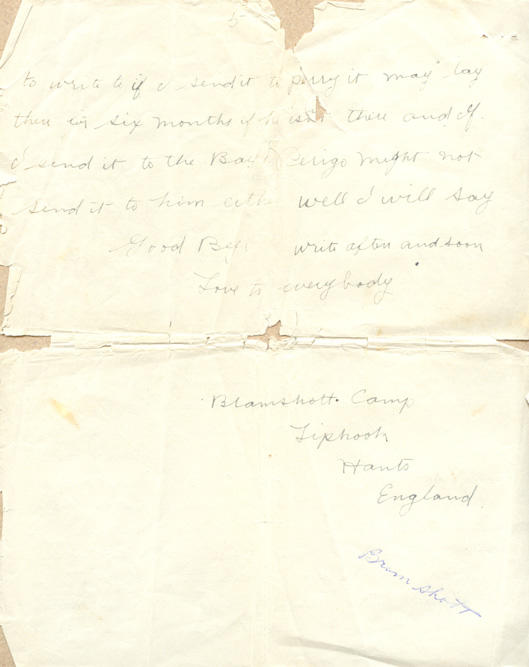 5
to write to if I send it to perry it may lay
there for six months if he isn't there and if
I send it to the Bay Perigo might not
send it to him well I will say
Good Bye write often and soon
Love to everybody
Bramshott Camp
Liphook
Hants
England
Bramshott